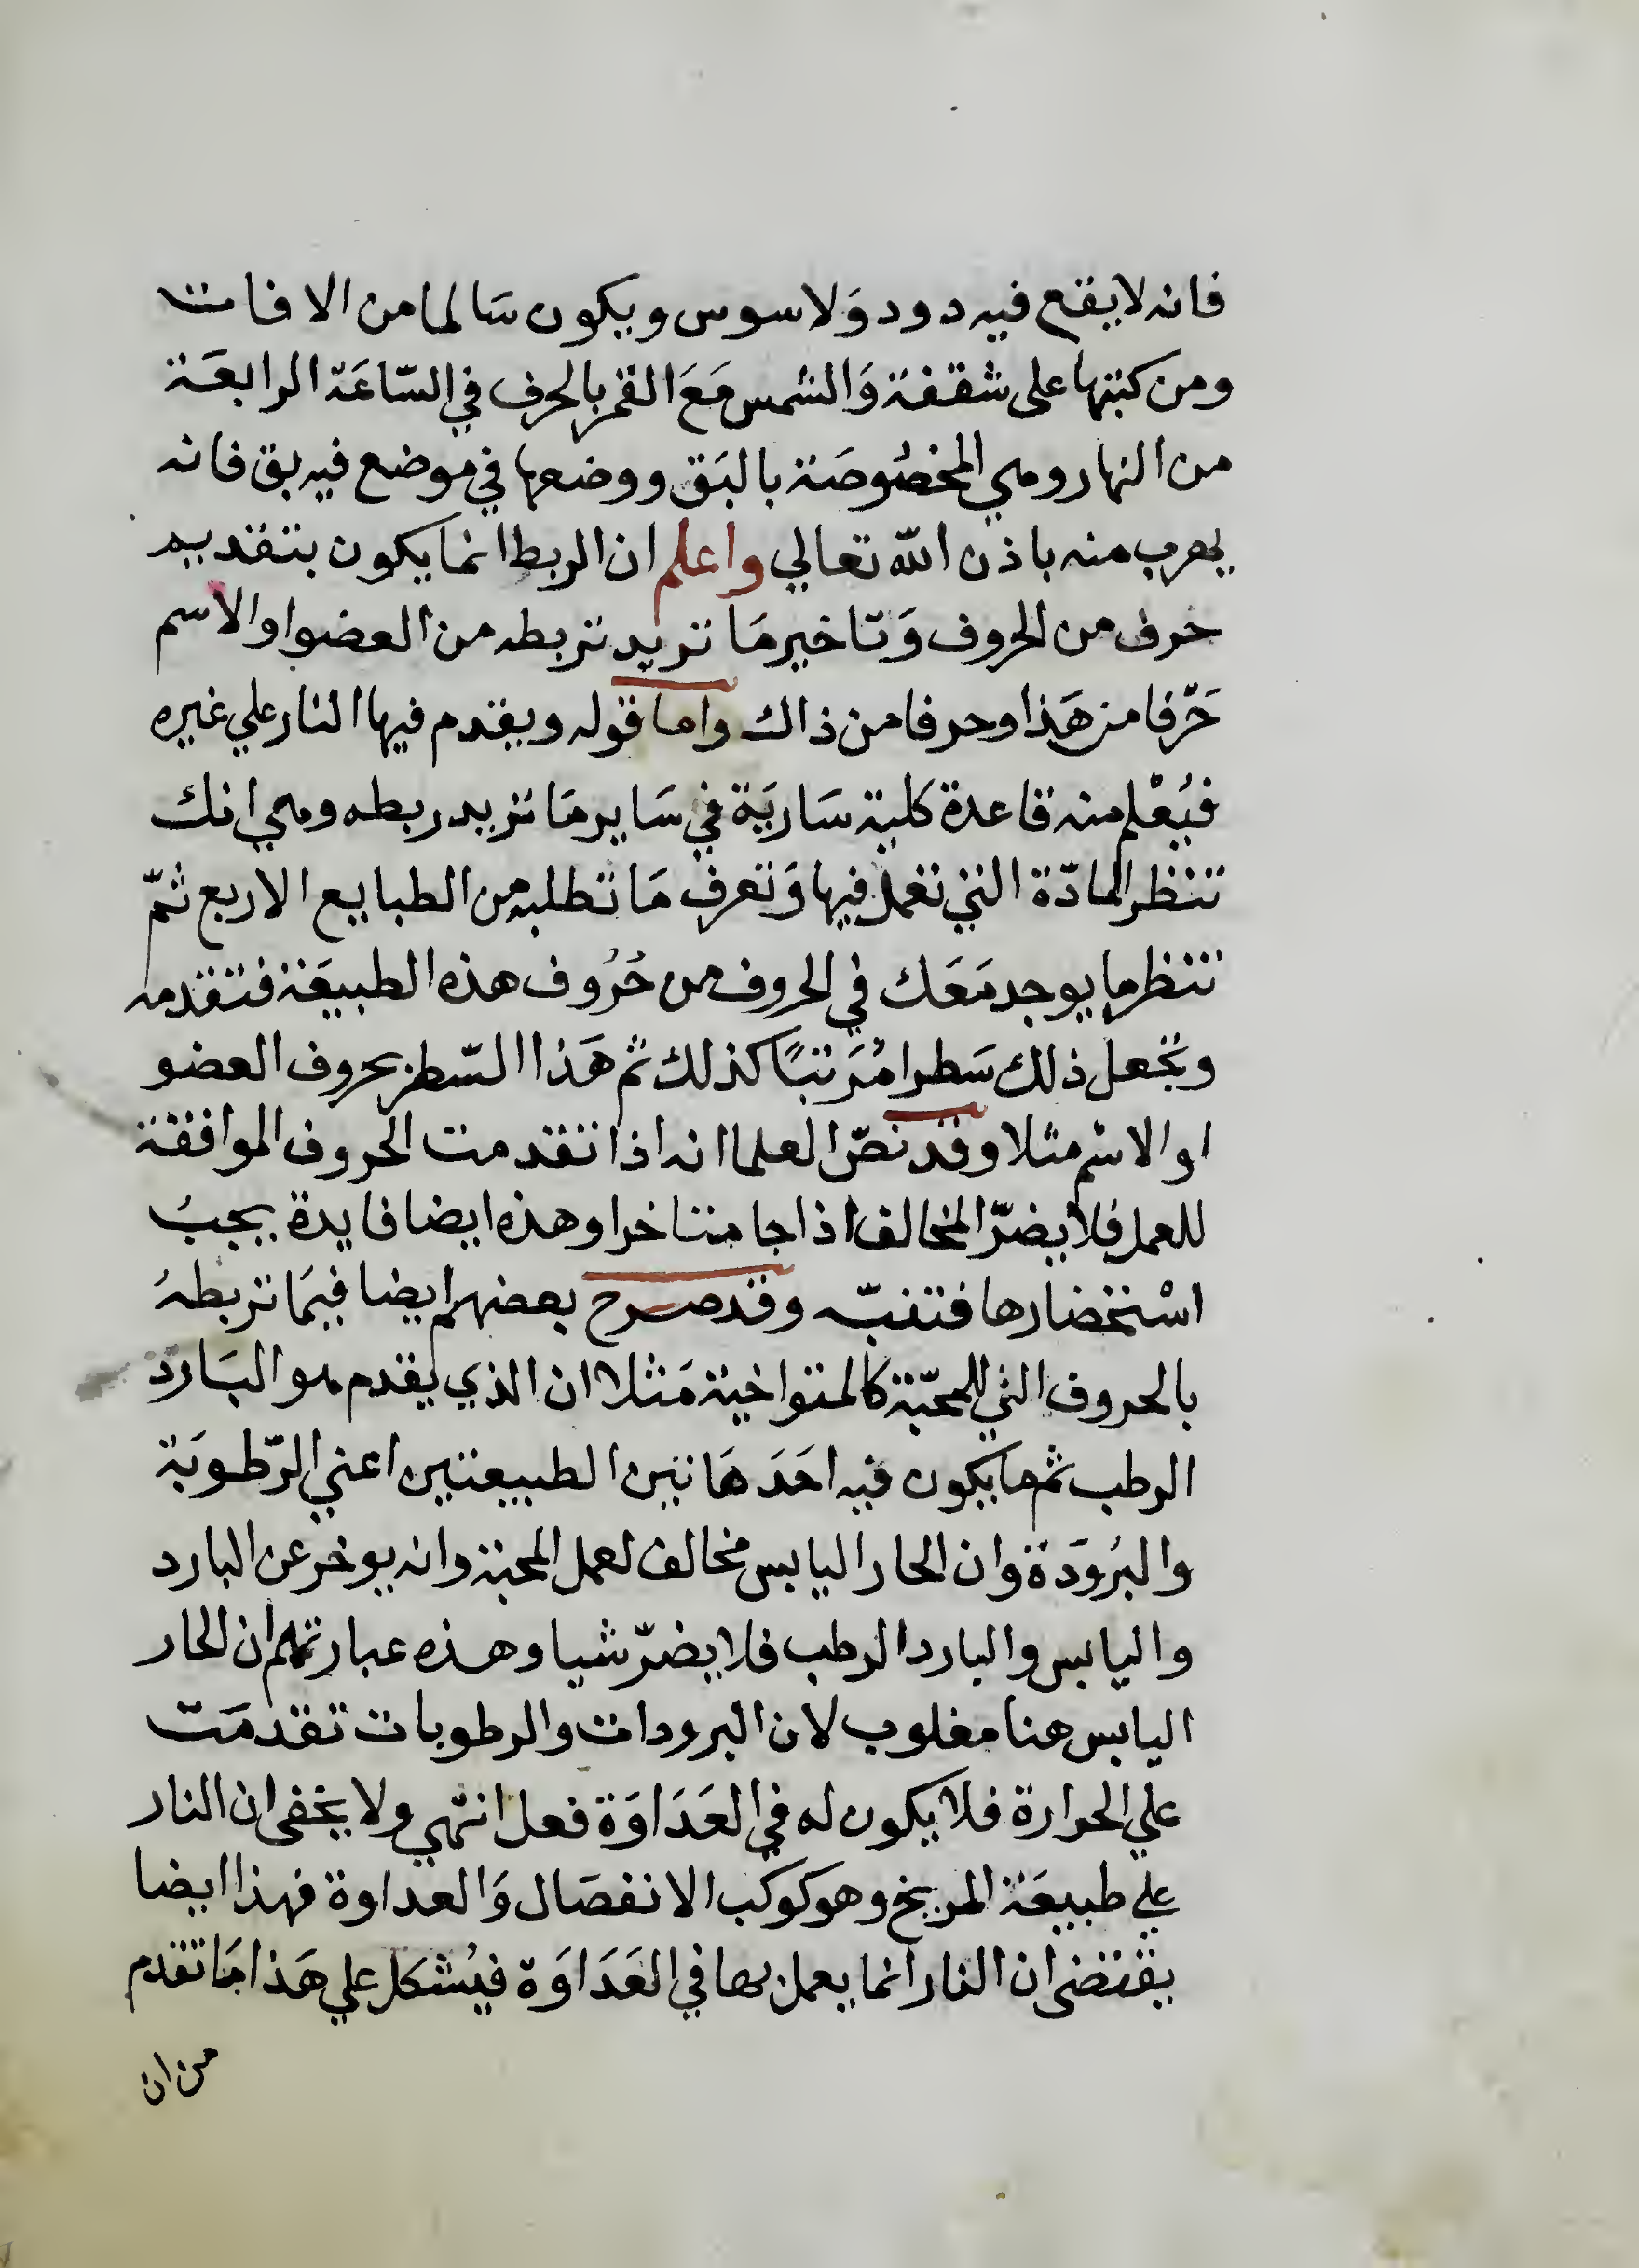 فانه لا يقع فيه دود وَلا سوس ويكون سَالما من الافات
ومن كتبها على شقفة وَالشمس مَعَ القمر بالحرف في السّاعَة الرابعَة
من النهار وهي المخصُوصَة بالبَق ووضعها في موضع فيه بق فانه
يهرب منه باذن الله تعالي واعلم ان الربط انما يكون بتقديم
حرف من الحروف وَتاخير مَا تريد تربطه من العضو او الاسم
حَرّفا من هَذا وحرفا من ذاك واما قوله ويقدم فيها النار علي غيره
فيُعْلم منه قاعدة كلية سَاريَة في سَاير مَا تريد ربطه وهي انك
تنظر المادّة التي تعمل فيها وَتعرف مَا تطلبه من الطبايع الاربع ثمّ
تنظر ما يوجد مَعَك في الحروف من حُرُوف هذه الطبيعَة فتقدمه
وتجعل ذلك سَطرا مُرَتبًا كذلك ثم هَذا السّطر بحروف العضو
او الاسْم مثلا وقد نصّ العلما انه اذا تقدمت الحروف الموافقة
للعمل فلا يضرّ المخالف اذا جا متاخرا وهذه ايضا فايدة يجبُ
اسْتحضارها فتنبّه وقد صرح بعضهم ايضا فيمَا تربطهُ
بالحروف التي للمحبّة كالمتواخية مَثلا ان الذي يقدم هو البَارد
الرطب ثم ما يكون فيه احَدَ هَاتين الطبيعتين اعني الرّطوبَة
والبُرودَة وان الحار اليابس مخالف لعمل المحبة وانه يوخر عن البارد
واليابس والبارد الرطب فلا يضرّ شيا وهذه عبارتهم ان الحار
اليابس هنا مغلوب لان البرودات والرطوبات تقدمَت
علي الحرارة فلا يكون له في العَدَاوَة فعل انتهي ولا يخفى ان النار
علي طبيعَة المريخ وهو كوكب الانفصَال وَالعداوة فهذا ايضا
يقتضى ان النار انما يعمل بها في العَدَاوَة فيُشكل علي هَذا مَا تقدم
من ان